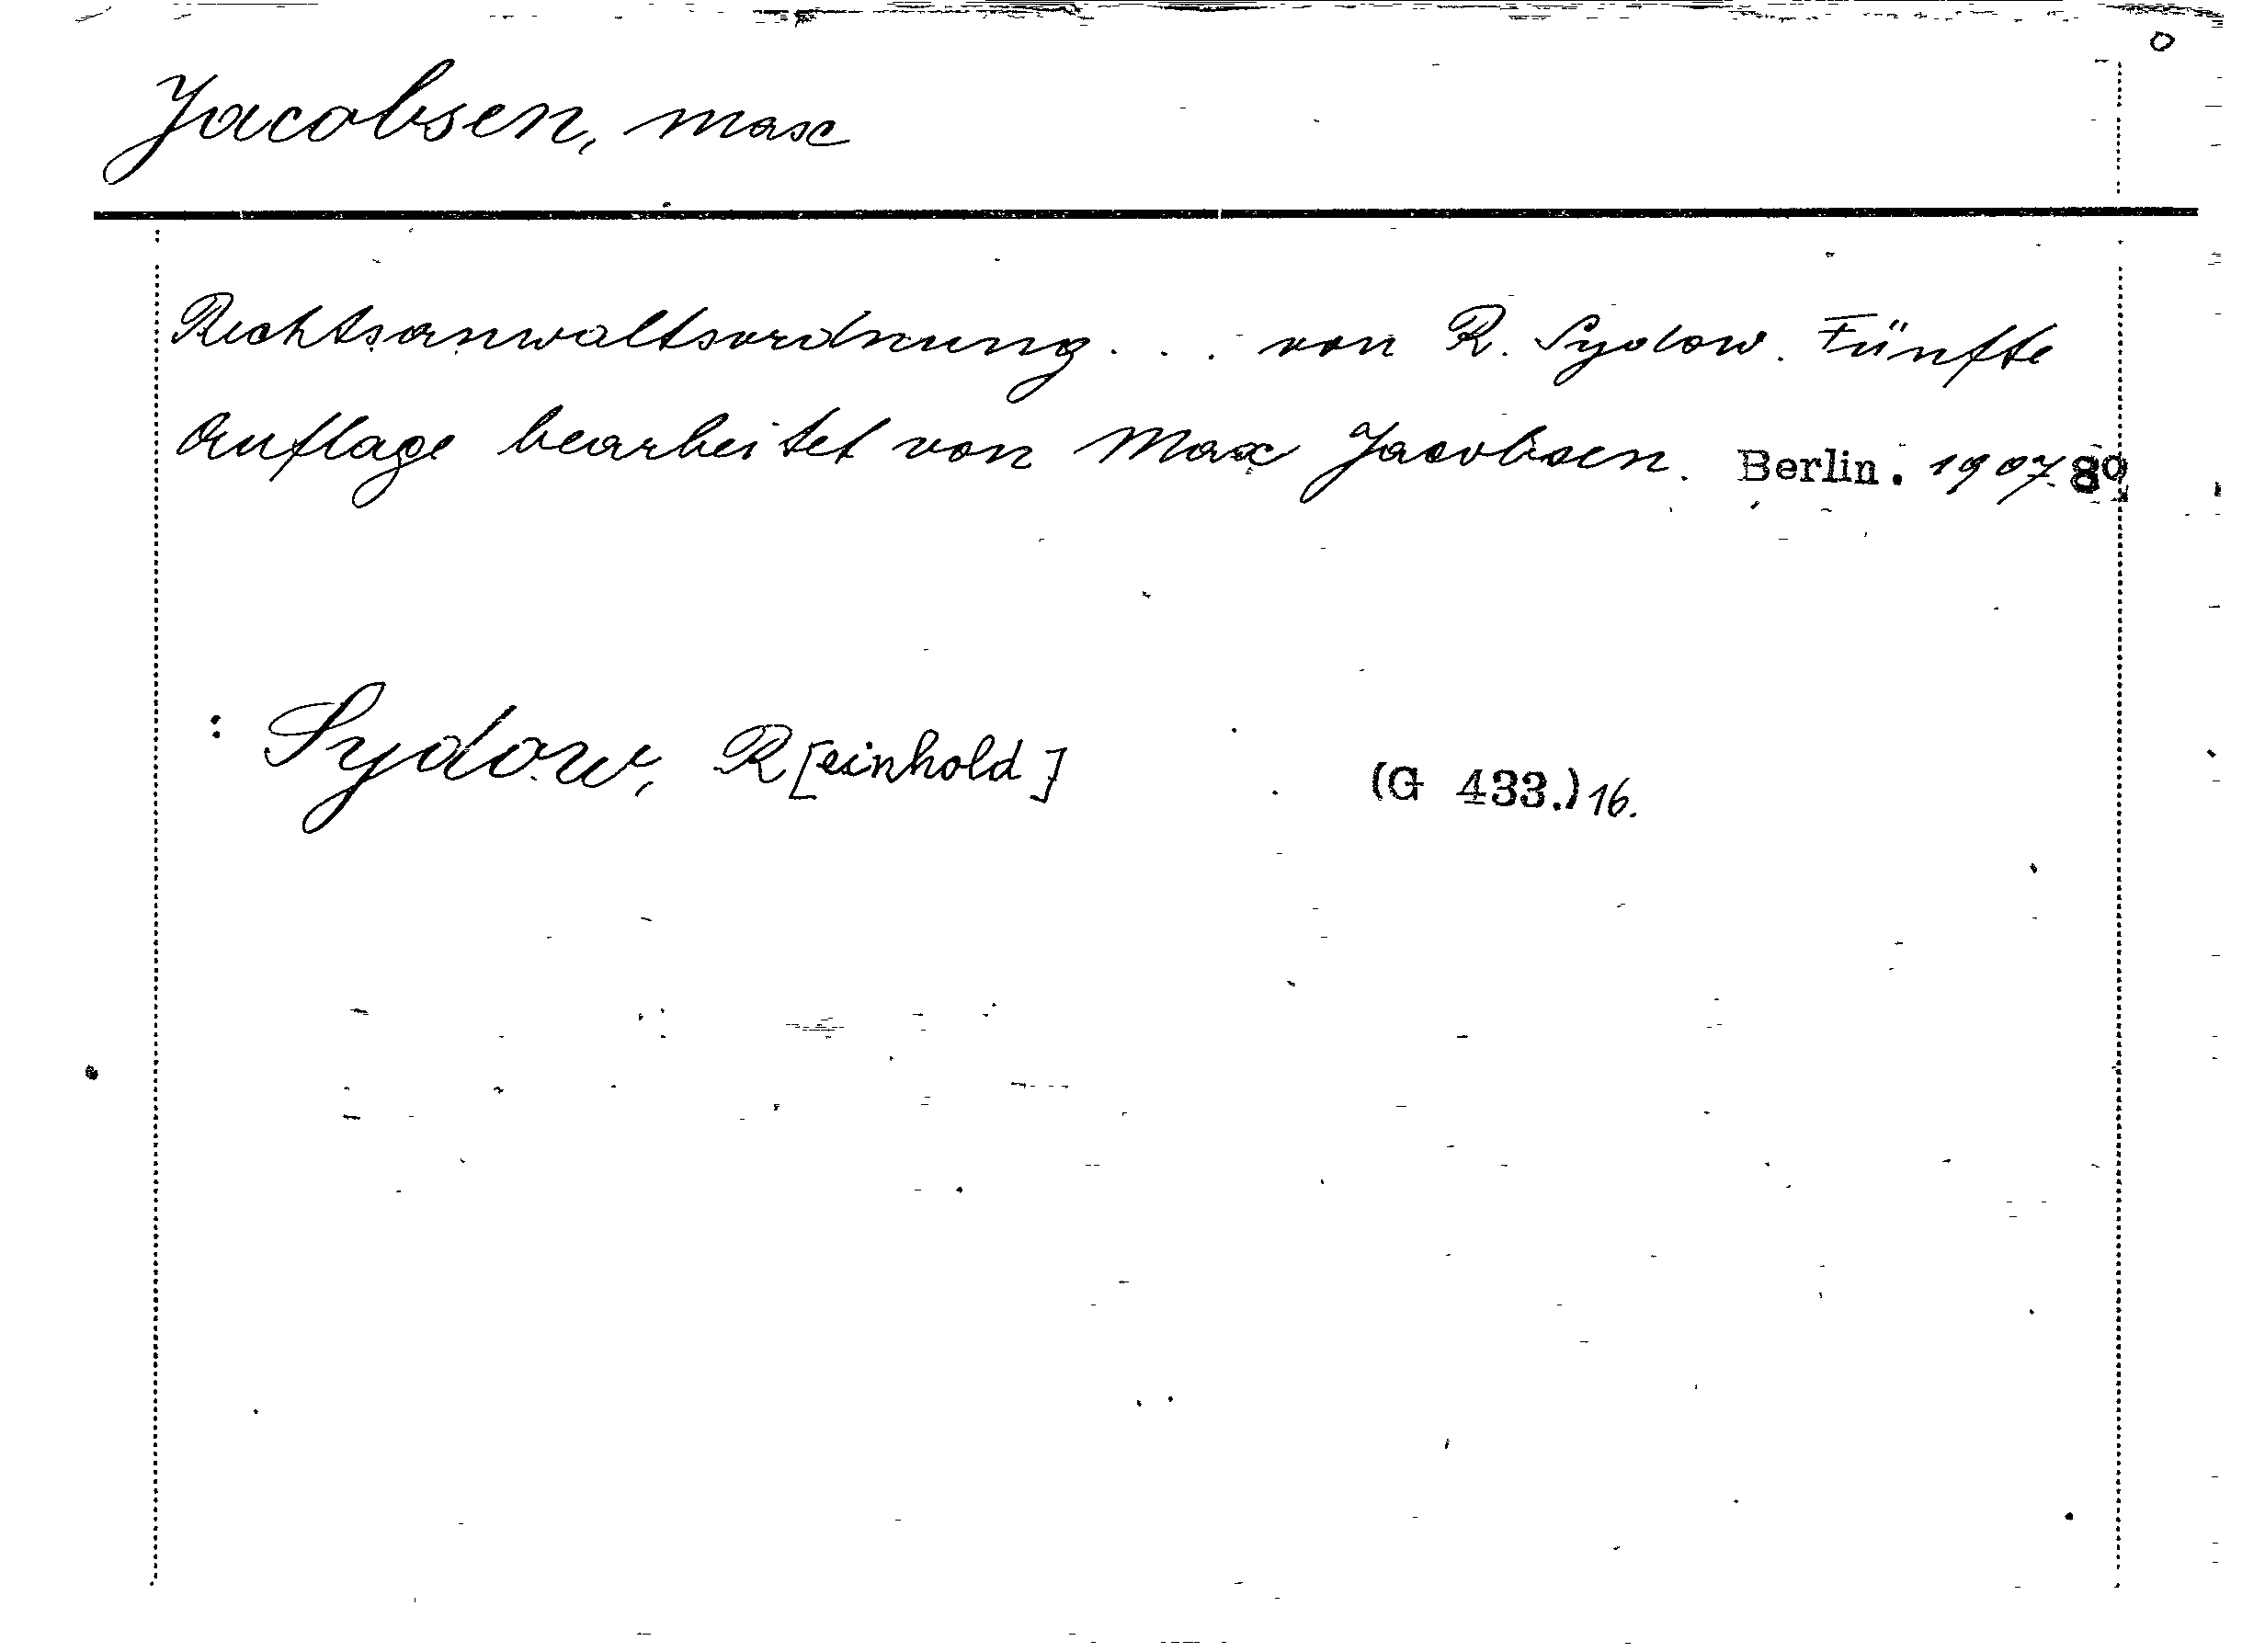 Jacobsen, Max
Rechtsanwaltsordnung... von R. Sydow. Fünfte
Auflage bearbeitet von Max Jacobsen. Berlin. 1907. 8°
: Sydow, R[einhold] (G 433.) 16.